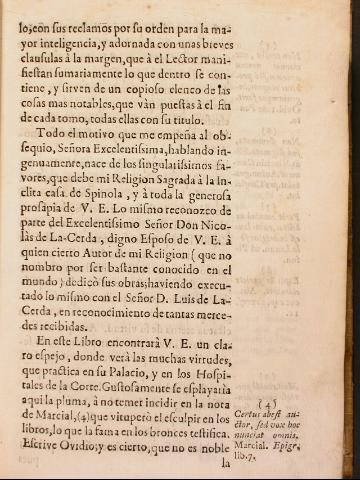 lo, con sus reclamos por su orden para la ma-
yor inteligencia, y adornada con unas breves
clausulas à la margen, que à el Lector mani-
fiestan sumariamente lo que dentro se con-
tiene, y sirven de un copioso elenco de las
cosas mas notables, que vàn puestas à el fin
de cada tomo, todas ellas con su titulo.
Todo el motivo que me empeña al ob-
sequio, Señora Excelentissima, hablando in-
genuamente, nace de los singularissimos fa-
vores, que debe mi Religion Sagrada à la In-
clita casa de Spinola, y à toda la generosa
prosapia de V. E. Lo mismo reconozco de
parte del Excelentissimo Señor Don Nico-
làs de La-Cerda, digno Esposo de V. E. à
quien cierto Autor de mi Religion (que no
nombro por ser bastante conocido en el
mundo) dedicò sus obras; haviendo execu-
tado lo mismo con el Señor D. Luis de La-
Cerda, en reconocimiento de tantas merce-
des recibidas.
En este Libro encontrarà V. E. un cla-
ro espejo, donde verà las muchas virtudes,
que practica en su Palacio, y en los Hospi-
tales de la Corte. Gustosamente se esplayaria
aqui la pluma, à no temer incidir en la nota
de Marcial, (4) que vituperò el esculpir en los
libros, lo que la fama en los bronces testifica.
Escrive Ovidio; y es cierto, que no es noble
la
(4)
Certus abest au-
ctor, sed vox hoc
nunciat omnis.
Marcial. Epigr.
lib. 7.